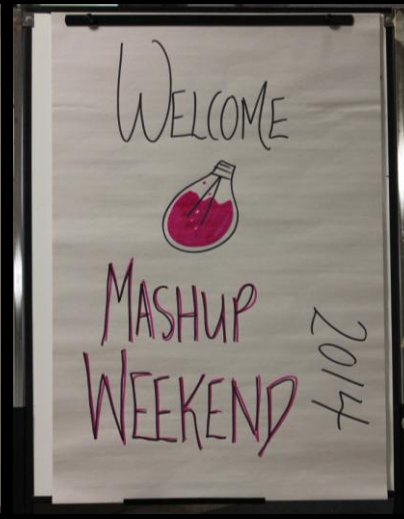 WELCOME
MASHUP
WEEKEND
2014